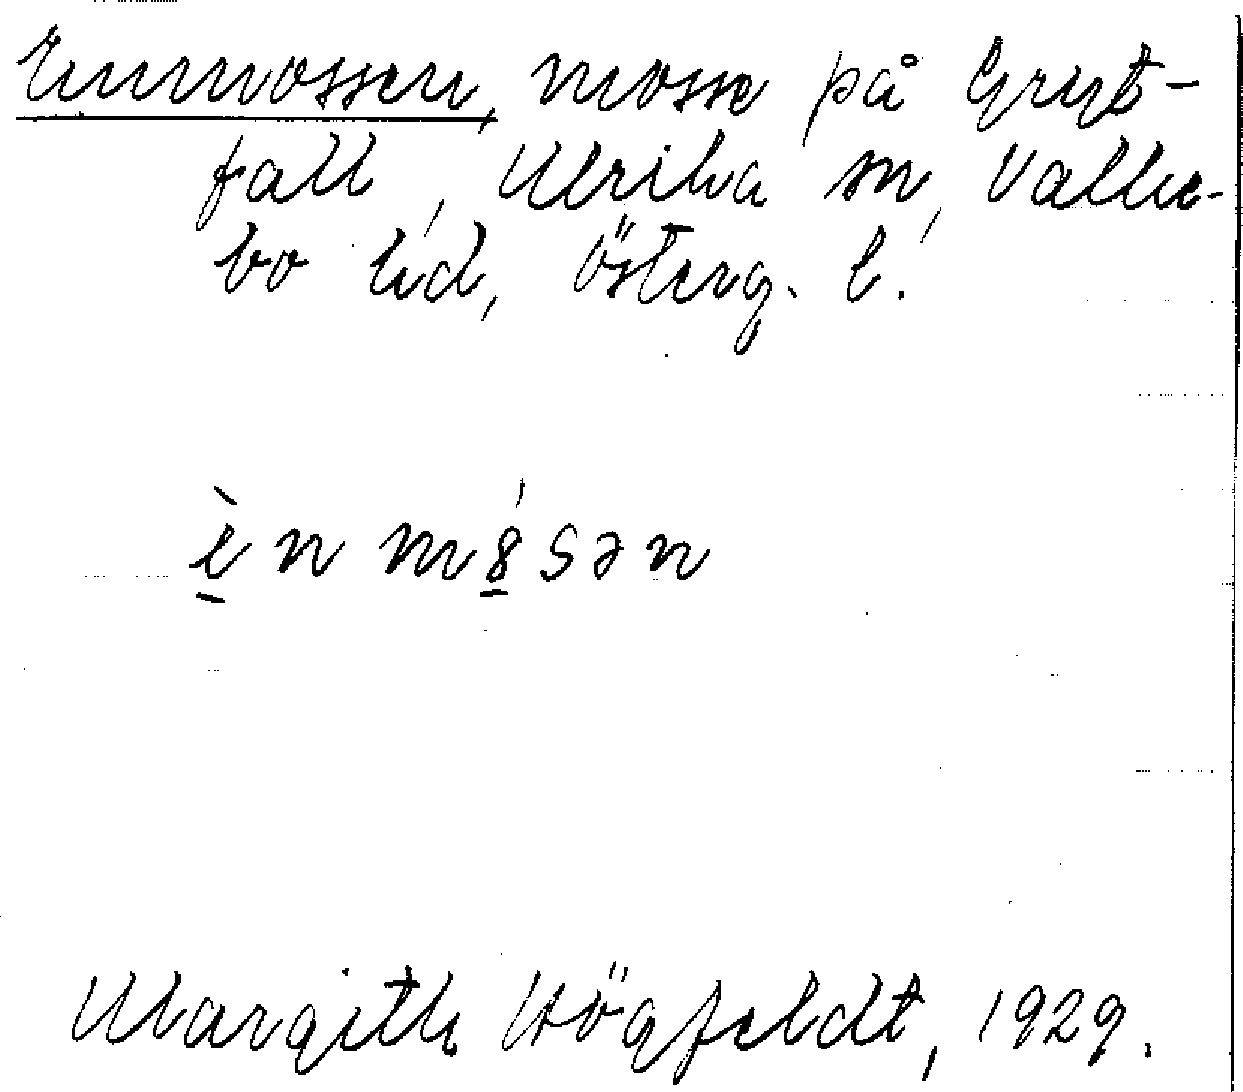 Enmossen, mosse på Gryt-
fall, Ulrika sn, Valke-
bo hd, Österg. l.
èn mósən
Margith Högfeldt, 1929.